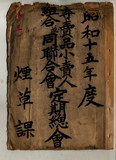 昭和十五年度
専賣品小賣人
組合同聯合會定期總會
煙草課